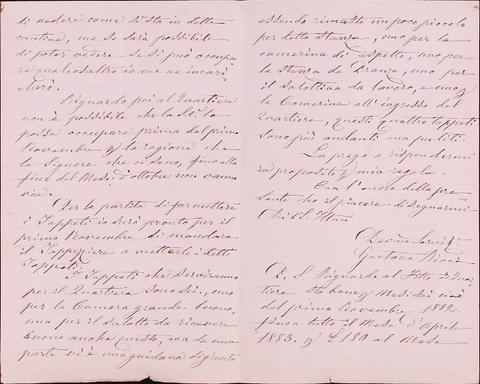 di vedere come si sta in dette
cantine, ma se sarà possibile
di poter vedere se si può occupa
re qualcos'altro io me ne incari
cherò.
Riguardo poi al Quartiere
non è possibile che la S.V.
possa occupare prima del primo
Novembre p/ la ragione che
le Signore che ci sono, fino alla
fine del Mese d'ottobre non vanno
via.
Per la partita di far mettere
i Tappeti io sarò pronto per il
primo Novembre di mandare
il Tappeziere a metterli i detti
Tappeti.
I Tappeti che serviranno
per il Quartiere sono sei, uno
per la Camera grande buono,
uno per il Salotto da ricevere
buono anche questo, ma da una
parte vi è una guidana di giunta
essendo rimasto un poco piccolo
per detta stanza, uno per la
camerina di aspetto, uno per
la stanza da Pranzo, uno per
il Salottino da lavoro, e uno p/
la Camerina all'ingresso del
Quartiere, questi quattro tappeti
sono più andanti ma puliti.
La prego a rispondermi
in proposito p/ mia regola.
Con l'onore della pre
sente ho il piacere di segnarmi
Di V.S. Ill.ma
Devmo Servit.
Gaetano
P.S. Riguardo al fitto di Quar
tiere sta bene p/ Mesi sei cioè
dal primo Novembre 1882.
fino a tutto il Mese d'Aprile
1883. p/ £ 180 al Mese